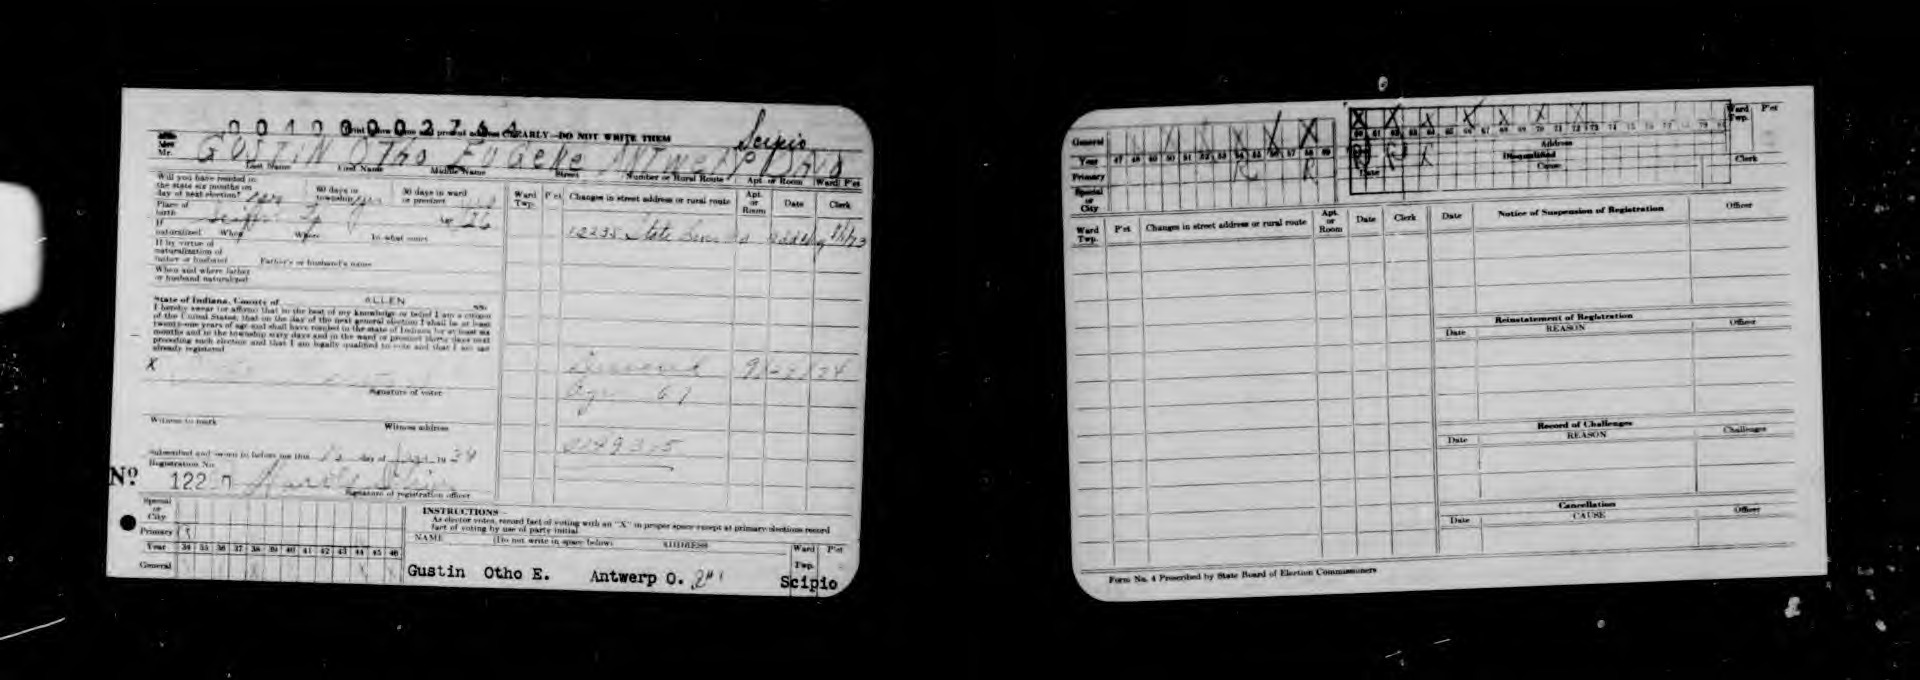 Scipio
CLEARLY—DO NOT WRITE THEM
Mr. GUSTIN Otho EUGENE ANTWERP
Last Name First Name Middle Name Street Number or Rural Route Apt. or Room Ward P'ct
Will you have resided in
the state six months on
day of next election? yes 60 days in township? yes 30 days in ward or precinct
Place of
birth Age 26
If
naturalized When Where In what court
If by virtue of
naturalization of
father or husband Father's or husband's name
When and where father
or husband naturalized
Ward Twp. P'ct Changes in street address or rural route Apt. or Room Date Clerk
12235 State Line
State of Indiana, County of ALLEN ss:
I hereby swear (or affirm) that to the best of my knowledge or belief I am a citizen
of the United States; that on the day of the next general election I shall be at least
twenty-one years of age and shall have resided in the state of Indiana for at least six
months and in the township sixty days and in the ward or precinct thirty days next
preceding such election and that I am legally qualified to vote and that I am not
already registered
X
Signature of voter
Deceased
Age 67
Witness to mark Witness address
Subscribed and sworn to before me this day of 19 34
Registration No.
No 122
Signature of registration officer
Special
or
City
Primary R
Year 34 35 36 37 38 39 40 41 42 43 44 45 46
General
INSTRUCTIONS—
As elector votes, record fact of voting with an "X" in proper space except at primary elections record
fact of voting by use of party initial
NAME (Do not write in space below) ADDRESS Ward Twp. P'ct
Gustin Otho E. Antwerp O. Scipio
General X X
Year 47 48 49 50 51 52 53 54 55 56 57 58 59
Primary R R
Special
or
City
X X X X X X X
60 61 62 63 64 65 66 67 68 69 70 71 72 73 74 75 76 77 78 79
Ward Twp. P'ct
Address
Disqualified
Date Cause Clerk
Ward Twp. P'ct Changes in street address or rural route Apt. or Room Date Clerk
Date Notice of Suspension of Registration Officer
Reinstatement of Registration
Date REASON Officer
Record of Challenges
Date REASON Challenger
Cancellation
Date CAUSE Officer
Form No. 4 Prescribed by State Board of Election Commissioners